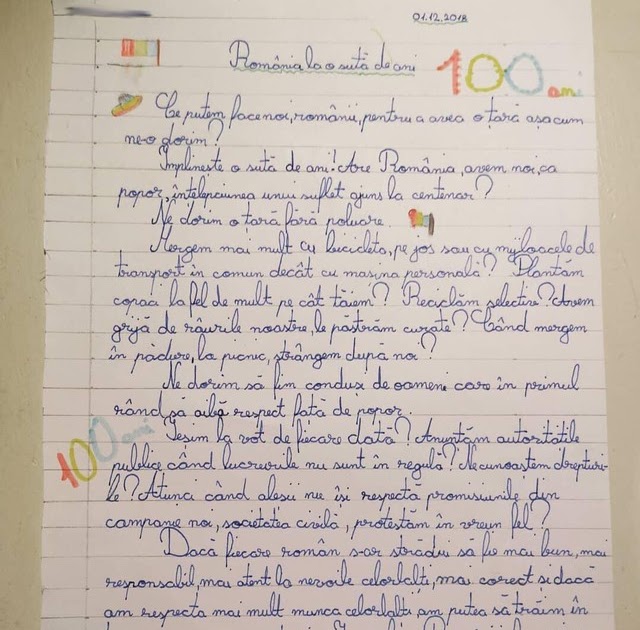 01.12.2018
România la o sută de ani
100 ani
Ce putem face noi, românii, pentru a avea o țară așa cum
ne-o dorim?
Împlinește o sută de ani! Are România, avem noi, ca
popor, înțelepciunea unui suflet ajuns la centenar?
Ne dorim o țară fără poluare.
Mergem mai mult cu bicicleta, pe jos sau cu mijloacele de
transport în comun decât cu mașina personală? Plantăm
copaci la fel de mult pe cât tăiem? Reciclăm selectiv? Avem
grijă de râurile noastre, le păstrăm curate? Când mergem
în pădure, la picnic, strângem după noi?
Ne dorim să fim conduși de oameni care în primul
rând să aibă respect față de popor.
100 ani
Ieșim la vot de fiecare dată? Anunțăm autoritățile
publice când lucrurile nu sunt în regulă? Ne cunoaștem drepturi-
le? Atunci când aleșii nu își respectă promisiunile din
campanie noi, societatea civilă, protestăm în vreun fel?
Dacă fiecare român s-ar strădui să fie mai bun, mai
responsabil, mai atent la nevoile celorlalți, mai corect și dacă
am respecta mai mult munca celorlalți, am putea să trăim în